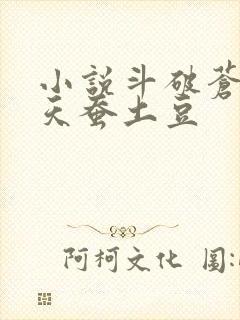 小説斗破蒼
天蚕土豆
阿柯文化 圖: